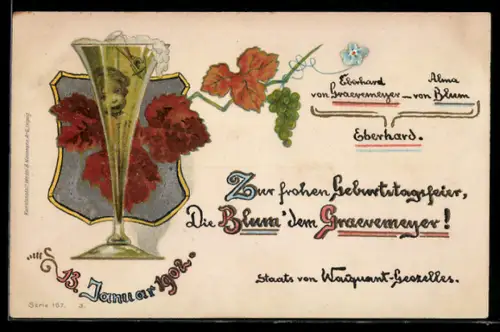 Eberhard
von Graevemeyer – von Blum
Alma
Eberhard.
Zur frohen Geburtstagsfeier,
Die Blum' dem Graevemeyer!
Staats von Wacquant-Geozelles.
13. Januar 1902.
Serie 167. 3.